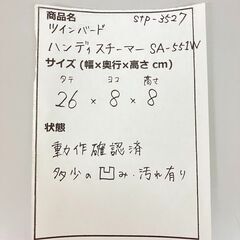 商品名 stp-3527
ツインバード
ハンディスチーマー SA-551W
サイズ(幅×奥行×高さcm)
タテ ヨコ 高さ
26×8×8
状態
動作確認済
多少の凹み・汚れ有り